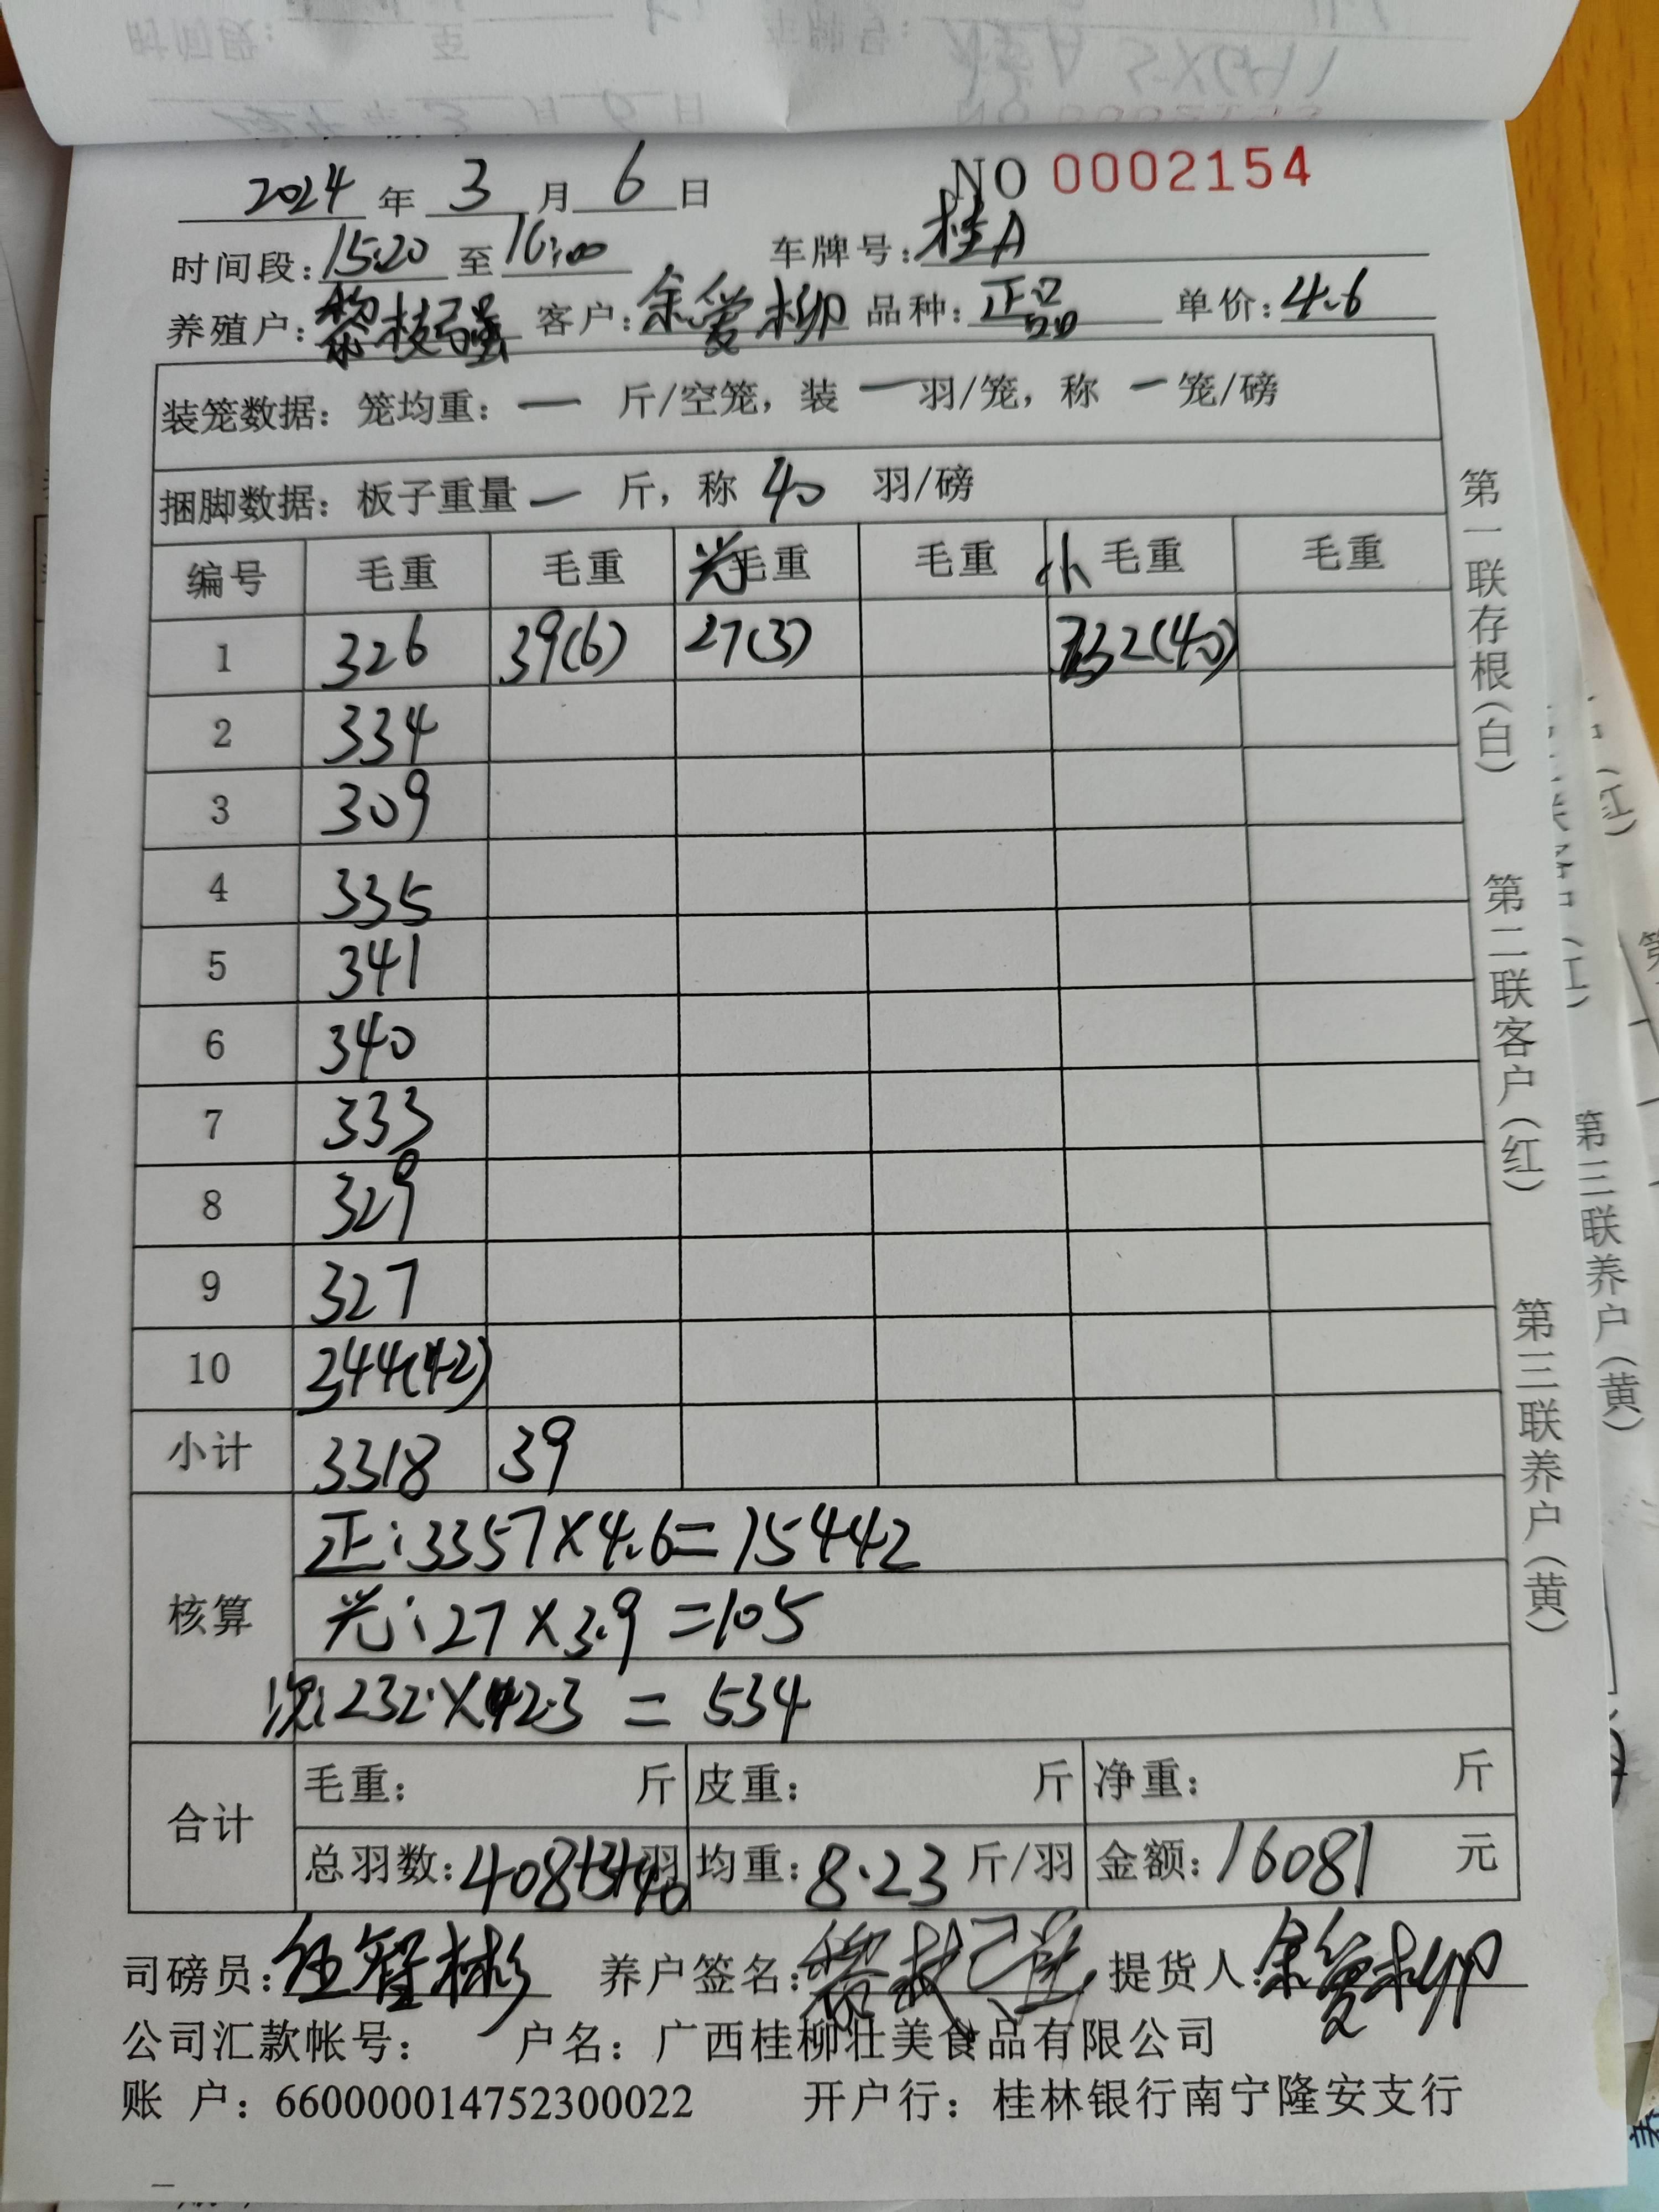 2024 年 3 月 6 日 NO 0002154
时间段: 15:20 至 16:00 车牌号: 桂A
养殖户: 黎枝强 客户: 余爱柳 品种: 正品 单价: 4.6
装笼数据: 笼均重: 一 斤/空笼, 装 一 羽/笼, 称 一 笼/磅
捆脚数据: 板子重量 一 斤, 称 40 羽/磅
编号 毛重 毛重 光毛重 毛重 小毛重 毛重
1 326 39(6) 27(3) 232(40)
2 334
3 309
4 335
5 341
6 340
7 333
8 329
9 327
10 344(42)
小计 3318 39
核算
正: 3357×4.6=15442
光: 27×3.9=105
次: 232×2.3=534
合计
毛重: 斤 皮重: 斤 净重: 斤
总羽数: 408+3+40羽 均重: 8.23 斤/羽 金额: 16081 元
司磅员: 伍智彬 养户签名: 黎枝强 提货人: 余爱柳
公司汇款帐号: 户名: 广西桂柳壮美食品有限公司
账 户: 660000014752300022 开户行: 桂林银行南宁隆安支行
第一联存根(白) 第二联客户(红) 第三联养户(黄)
第三联养户(黄)